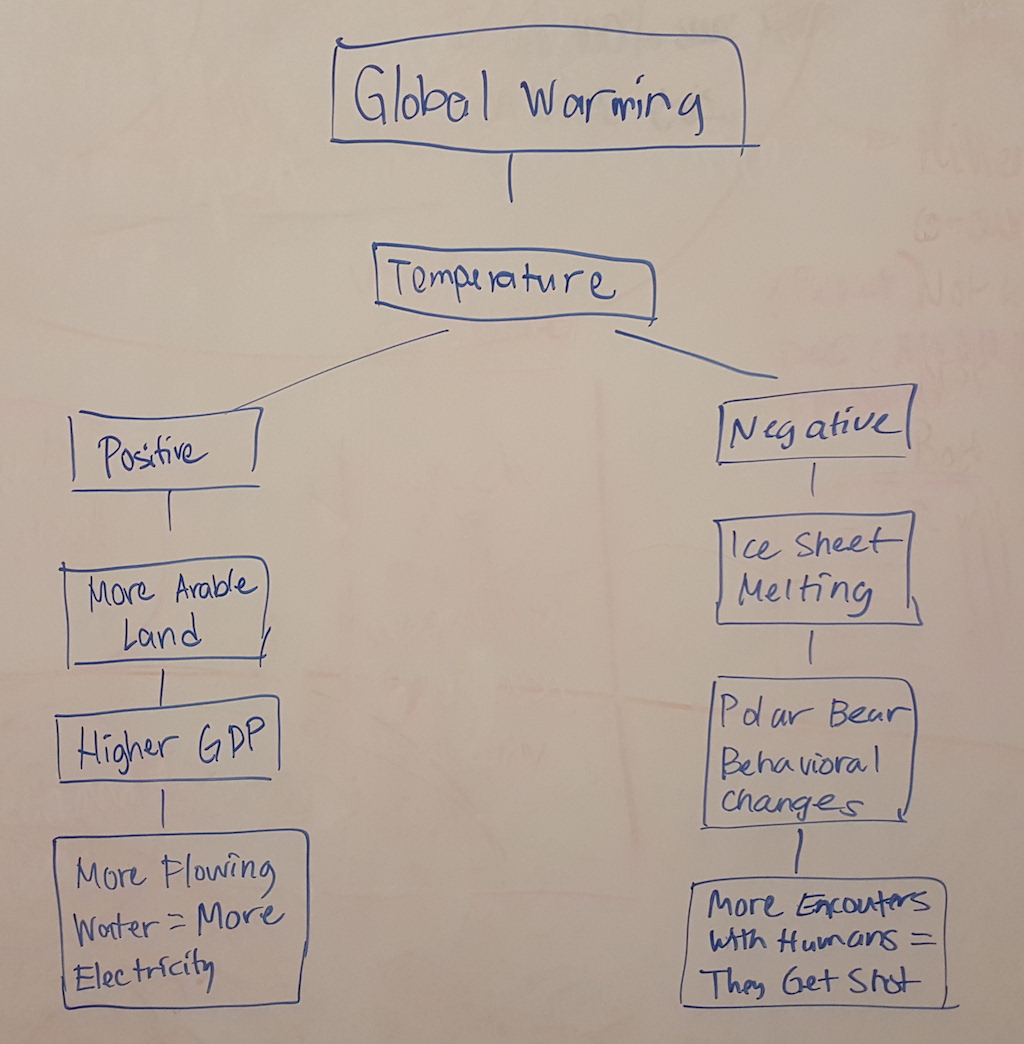 Global Warming
Temperature
Positive
Negative
More Arable
Land
Higher GDP
More Flowing
Water = More
Electricity
Ice Sheet
Melting
Polar Bear
Behavioral
Changes
More Encouters
With Humans =
They Get Shot